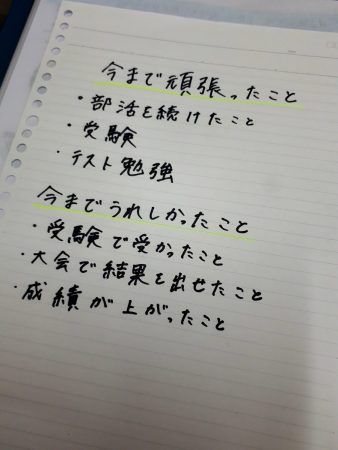 今まで頑張ったこと
・部活を続けたこと
・受験
・テスト勉強
今までうれしかったこと
・受験で受かったこと
・大会で結果を出せたこと
・成績が上がったこと